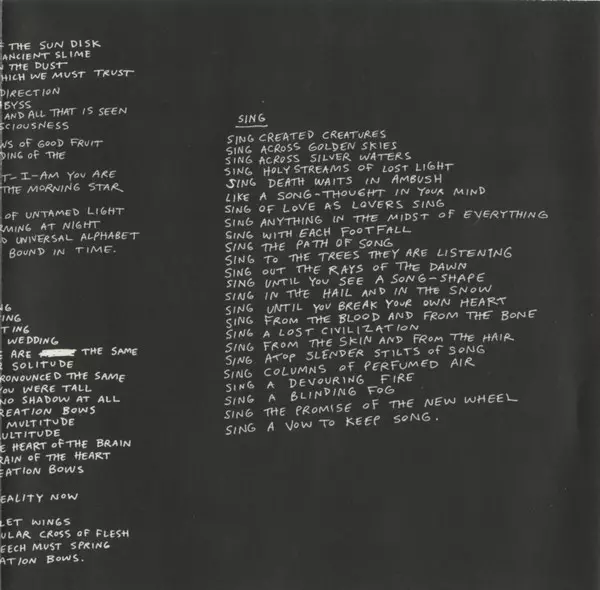 F THE SUN DISK
ANCIENT SLIME
THE DUST
HICH WE MUST TRUST
DIRECTION
BYSS
AND ALL THAT IS SEEN
SCIOUSNESS
WS OF GOOD FRUIT
DING OF THE
T-I-AM YOU ARE
THE MORNING STAR
OF UNTAMED LIGHT
RMING AT NIGHT
D UNIVERSAL ALPHABET
BOUND IN TIME.
NG
ING
TING
WEDDING
E ARE THE SAME
SOLITUDE
RONOUNCED THE SAME
YOU WERE TALL
NO SHADOW AT ALL
REATION BOWS
MULTITUDE
ULTITUDE
E HEART OF THE BRAIN
RAIN OF THE HEART
EATION BOWS
EALITY NOW
LET WINGS
ULAR CROSS OF FLESH
EECH MUST SPRING
ATION BOWS.
SING
SING CREATED CREATURES
SING ACROSS GOLDEN SKIES
SING ACROSS SILVER WATERS
SING HOLY STREAMS OF LOST LIGHT
SING DEATH WAITS IN AMBUSH
LIKE A SONG-THOUGHT IN YOUR MIND
SING OF LOVE AS LOVERS SING
SING ANYTHING IN THE MIDST OF EVERYTHING
SING WITH EACH FOOTFALL
SING THE PATH OF SONG
SING TO THE TREES THEY ARE LISTENING
SING OUT THE RAYS OF THE DAWN
SING UNTIL YOU SEE A SONG-SHAPE
SING IN THE HAIL AND IN THE SNOW
SING UNTIL YOU BREAK YOUR OWN HEART
SING FROM THE BLOOD AND FROM THE BONE
SING A LOST CIVILIZATION
SING FROM THE SKIN AND FROM THE HAIR
SING ATOP SLENDER STILTS OF SONG
SING COLUMNS OF PERFUMED AIR
SING A DEVOURING FIRE
SING A BLINDING FOG
SING THE PROMISE OF THE NEW WHEEL
SING A VOW TO KEEP SONG.